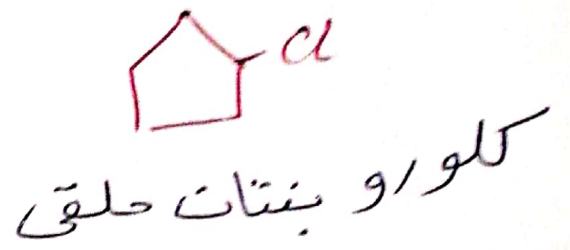 Cl
كلورو بنتان حلقي